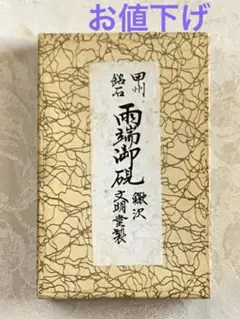 お値下げ
甲州
銘石
雨端御硯
鰍沢
文明堂製